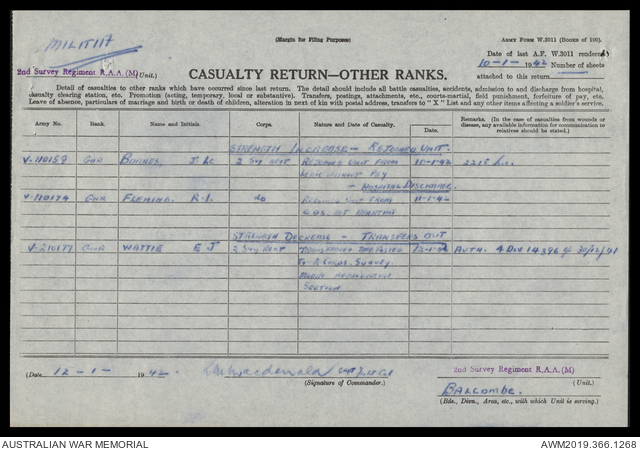 MILITIA
(Margin for Filing Purposes)
ARMY FORM W.3011 (Books of 100).
Date of last A.F. W.3011 rendered
10-1-1942 Number of sheets
attached to this return
2nd Survey Regiment R.A.A. (M) (Unit.)
CASUALTY RETURN—OTHER RANKS.
Detail of casualties to other ranks which have occurred since last return. The detail should include all battle casualties, accidents, admission to and discharge from hospital,
casualty clearing station, etc. Promotion (acting, temporary, local or substantive). Transfers, postings, attachments, etc., courts-martial, field punishment, forfeiture of pay, etc.
Leave of absence, particulars of marriage and birth or death of children, alteration in next of kin with postal address, transfers to "X" List and any other items affecting a soldier's service.
Army No. Rank. Name and Initials. Corps. Nature and Date of Casualty. Date. Remarks. (In the case of casualties from wounds or disease, any available information for communication to relatives should be stated.)
STRENGTH INCREASE — REJOINED UNIT.
V-110159 GNR BARNES J. Lc 2 Svy REGT REJOINED UNIT FROM 10-1-42 2215 hrs.
LEAVE WITHOUT PAY
— HOSPITAL DISCHARGE.
V-110174 GNR FLEMING. R.I. do REJOINED UNIT FROM 11-1-42
STRENGTH DECREASE — TRANSFERS OUT
V-210177 GNR WATTIE E J 2 Svy REGT TRANSFERRED AND POSTED 12-1-42 AUTH. 4 DIV 14396 of 30/12/41
TO 2 CORPS. SURVEY
SECTION
(Date 12-1-1942 Macdonald
(Signature of Commander.)
2nd Survey Regiment R.A.A. (M)
(Unit.)
BALCOMBE.
(Bde., Divn., Area, etc., with which Unit is serving.)
AUSTRALIAN WAR MEMORIAL
AWM2019.366.1268